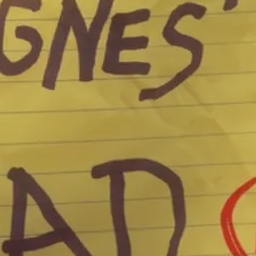 GNES'
AD